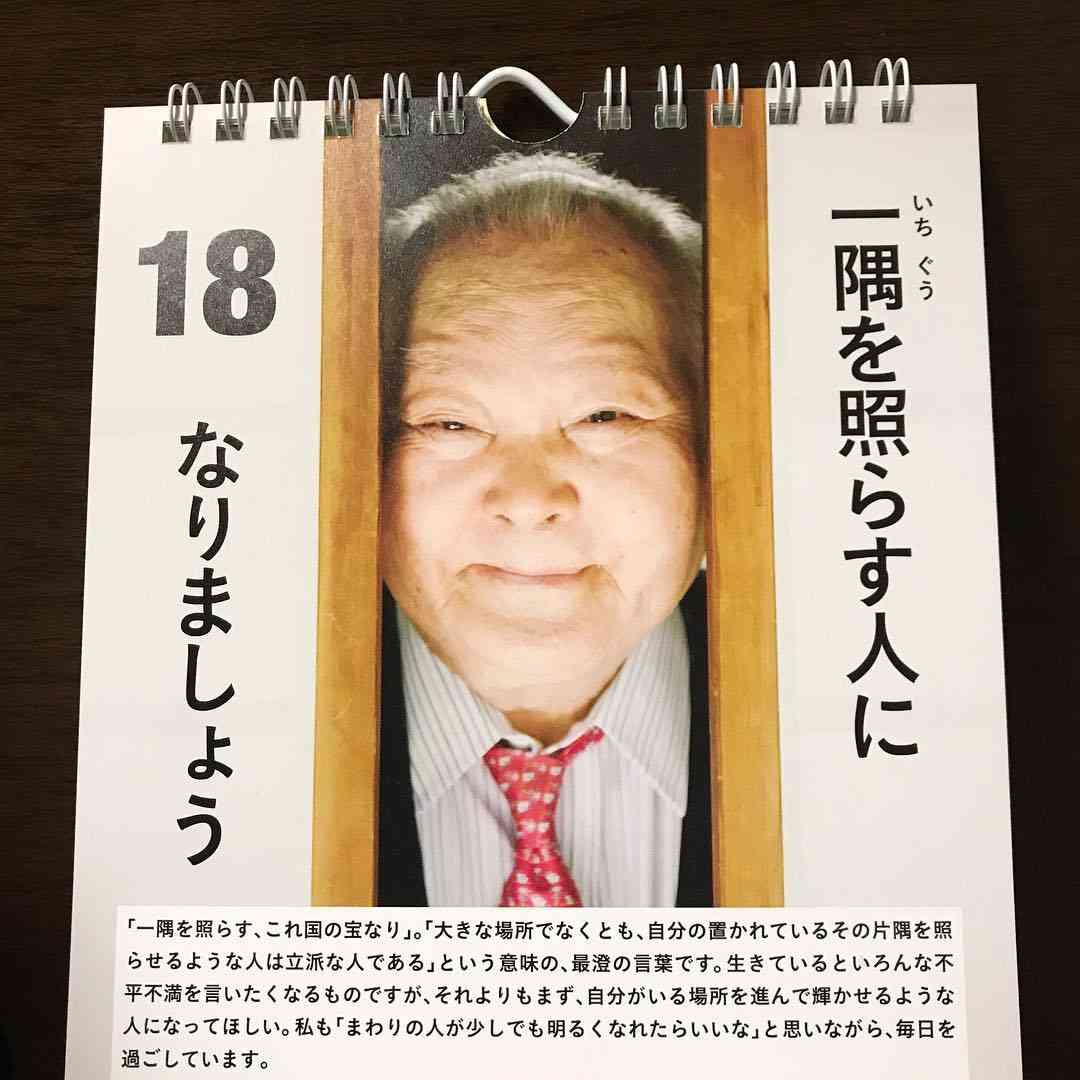 いち ぐう
一隅を照らす人に
18
なりましょう
「一隅を照らす、これ国の宝なり」。「大きな場所でなくとも、自分の置かれているその片隅を照
らせるような人は立派な人である」という意味の、最澄の言葉です。生きているといろんな不
平不満を言いたくなるものですが、それよりもまず、自分がいる場所を進んで輝かせるような
人になってほしい。私も「まわりの人が少しでも明るくなれたらいいな」と思いながら、毎日を
過ごしています。